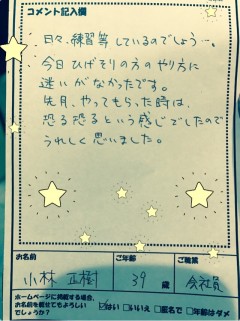 コメント記入欄
日々、練習等しているのでしょう…。
今日ひげそりの方のやり方に
迷いがなかったです。
先月、やってもらった時は、
恐る恐るという感じでしたので
うれしく思いました。
お名前 ご年齢 ご職業
小林 正樹 39 歳 会社員
ホームページに掲載する場合、
お名前を載せてもよろしい
でしょうか?
☑はい □いいえ □匿名で □年齢はダメ